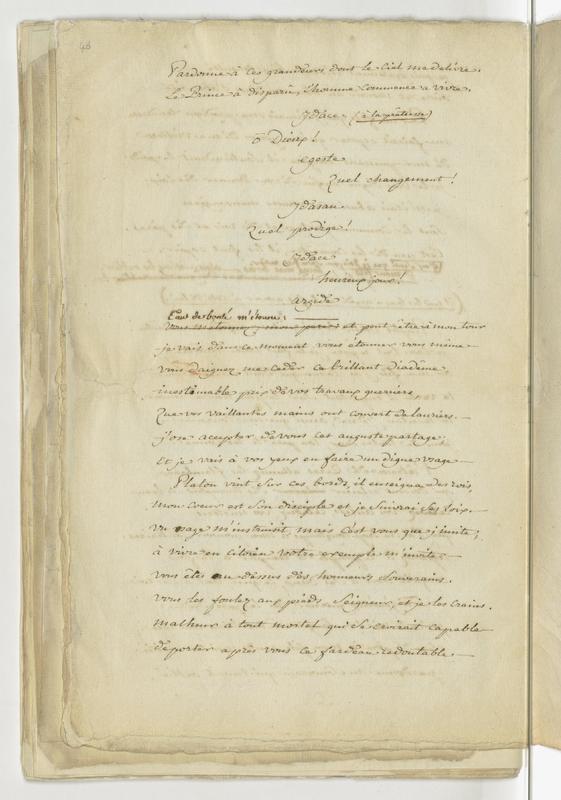 48
Pardonne à ces grandeurs dont le Ciel me delivre.
Le Prince a disparu, l'homme commence a vivre.
Ydace (à la prêtresse)
ô Dieux!
egeste
Quel changement!
Ydasan
Quel prodige!
Ydace
heureux jour!
argide
tant de bonté m'étonne;
vous m'étonnez, mon pere: et peut être à mon tour
je vais dans ce moment vous étonner vous même
vous daignez me ceder ce brillant Diadême
inestimable prix de vos travaux guerriers,
Que vos vaillantes mains ont couvert de lauriers.
j'ose accepter de vous cet auguste partage,
Et je vais à vos yeux en faire un digne usage
Platon vint sur ces bords, il enseigna des rois,
mon coeur est son disciple et je suivrai ses loix.
un sage m'instruisit, mais c'est vous que j'imite;
à vivre en citoien votre exemple m'invite.
vous êtes au dessus des honneurs souverains.
vous les foulez aux pieds Seigneur, et je les crains.
malheur à tout mortel qui se croirait capable
de porter après vous ce fardeau redoutable.